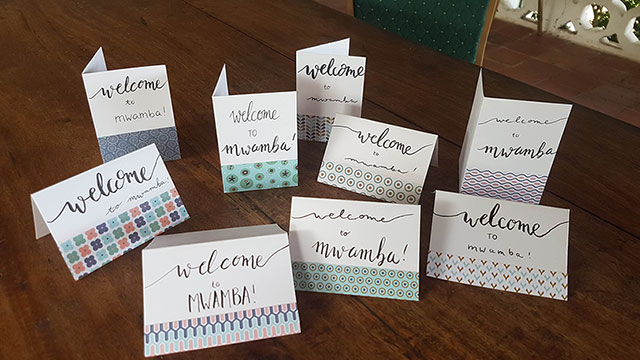 welcome
to
mwamba!
welcome
TO
mwamba!
welcome
to
mwamba
welcome
to
mwamba!
welcome
to
mwamba
welcome
to mwamba
welcome
to
MWAMBA!
welcome
to
mwamba!
welcome
to
mwamba!